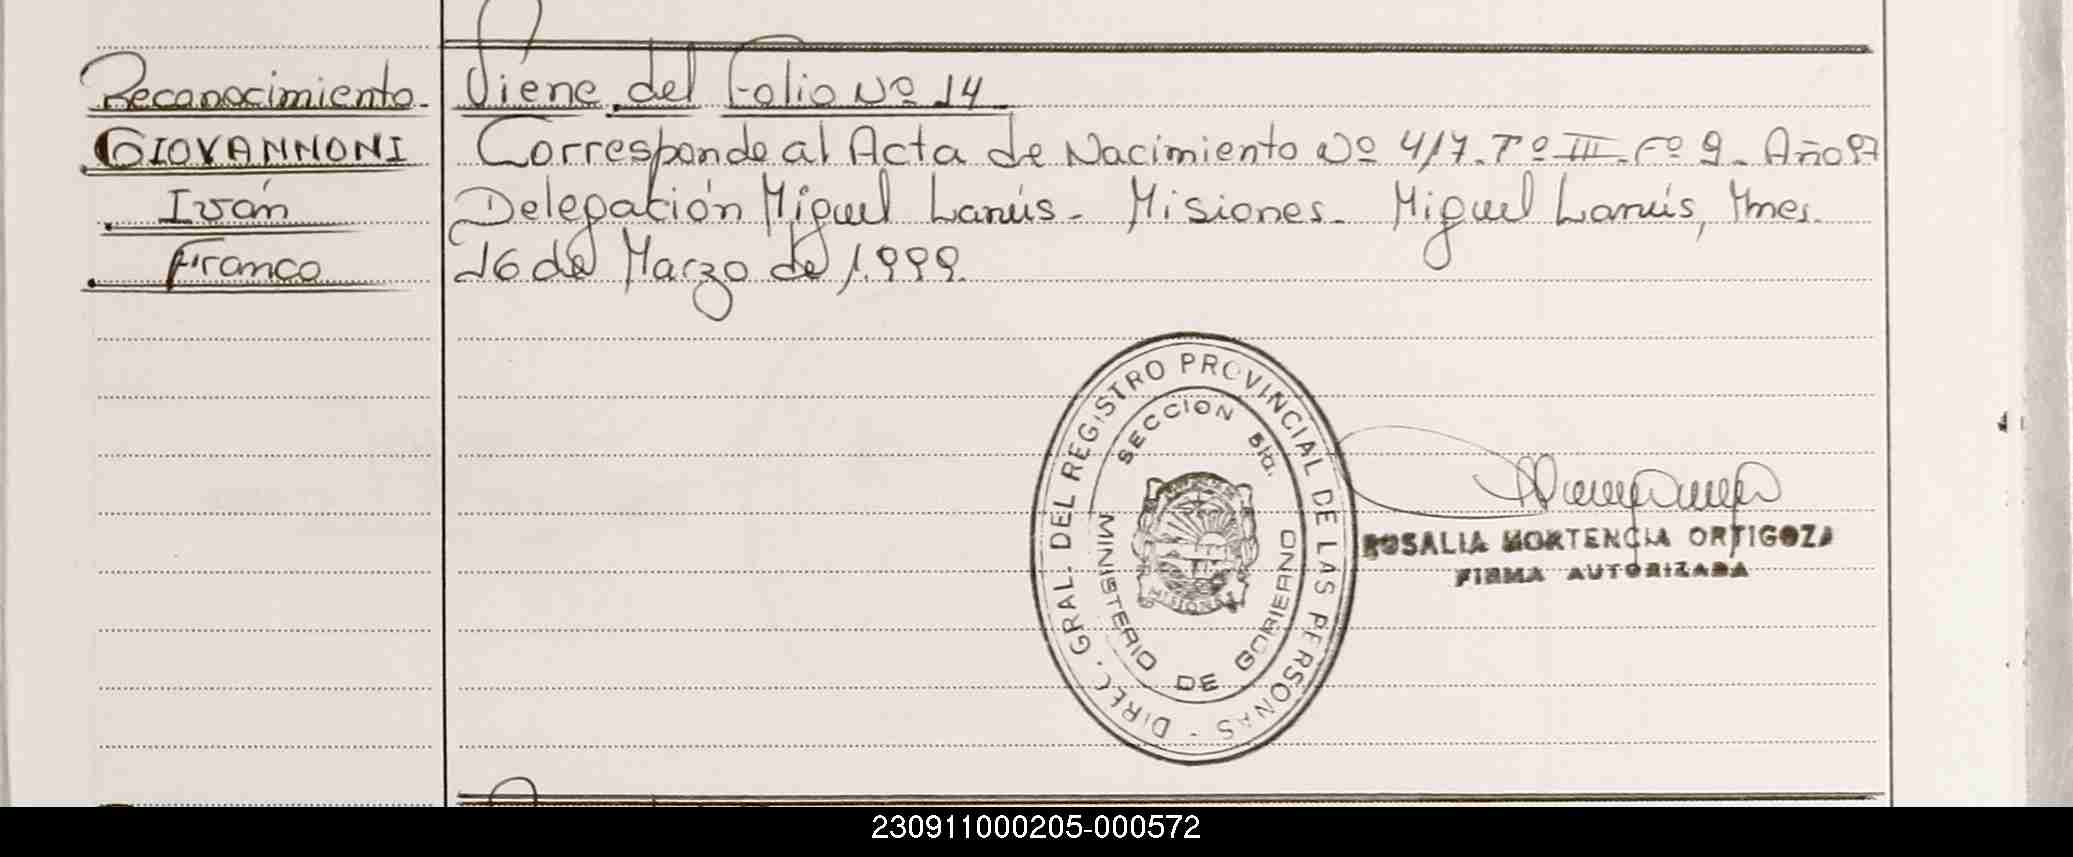 Reconocimiento.
GIOVANNONI
Iván
Franco
Viene del Folio Nº 14
Corresponde al Acta de Nacimiento Nº 417. Tº III. Fº 9. Año 97
Delegación Miguel Lanús - Misiones. Miguel Lanús, Mnes.
16 de Marzo de 1.999.
DIREC. GRAL. DEL REGISTRO PROVINCIAL DE LAS PERSONAS -
SECCION 5ta.
MINISTERIO DE GOBIERNO
MISIONES
ROSALIA HORTENCIA ORTIGOZA
FIRMA AUTORIZADA
230911000205-000572